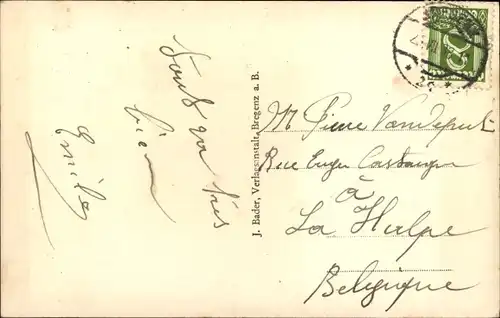 Tout va très
bien
Emile
J. Bader, Verlagsanstalt, Bregenz a. B.
Mr Pierre Vandeput
Rue Eugène Castaigne
à
La Hulpe
Belgique